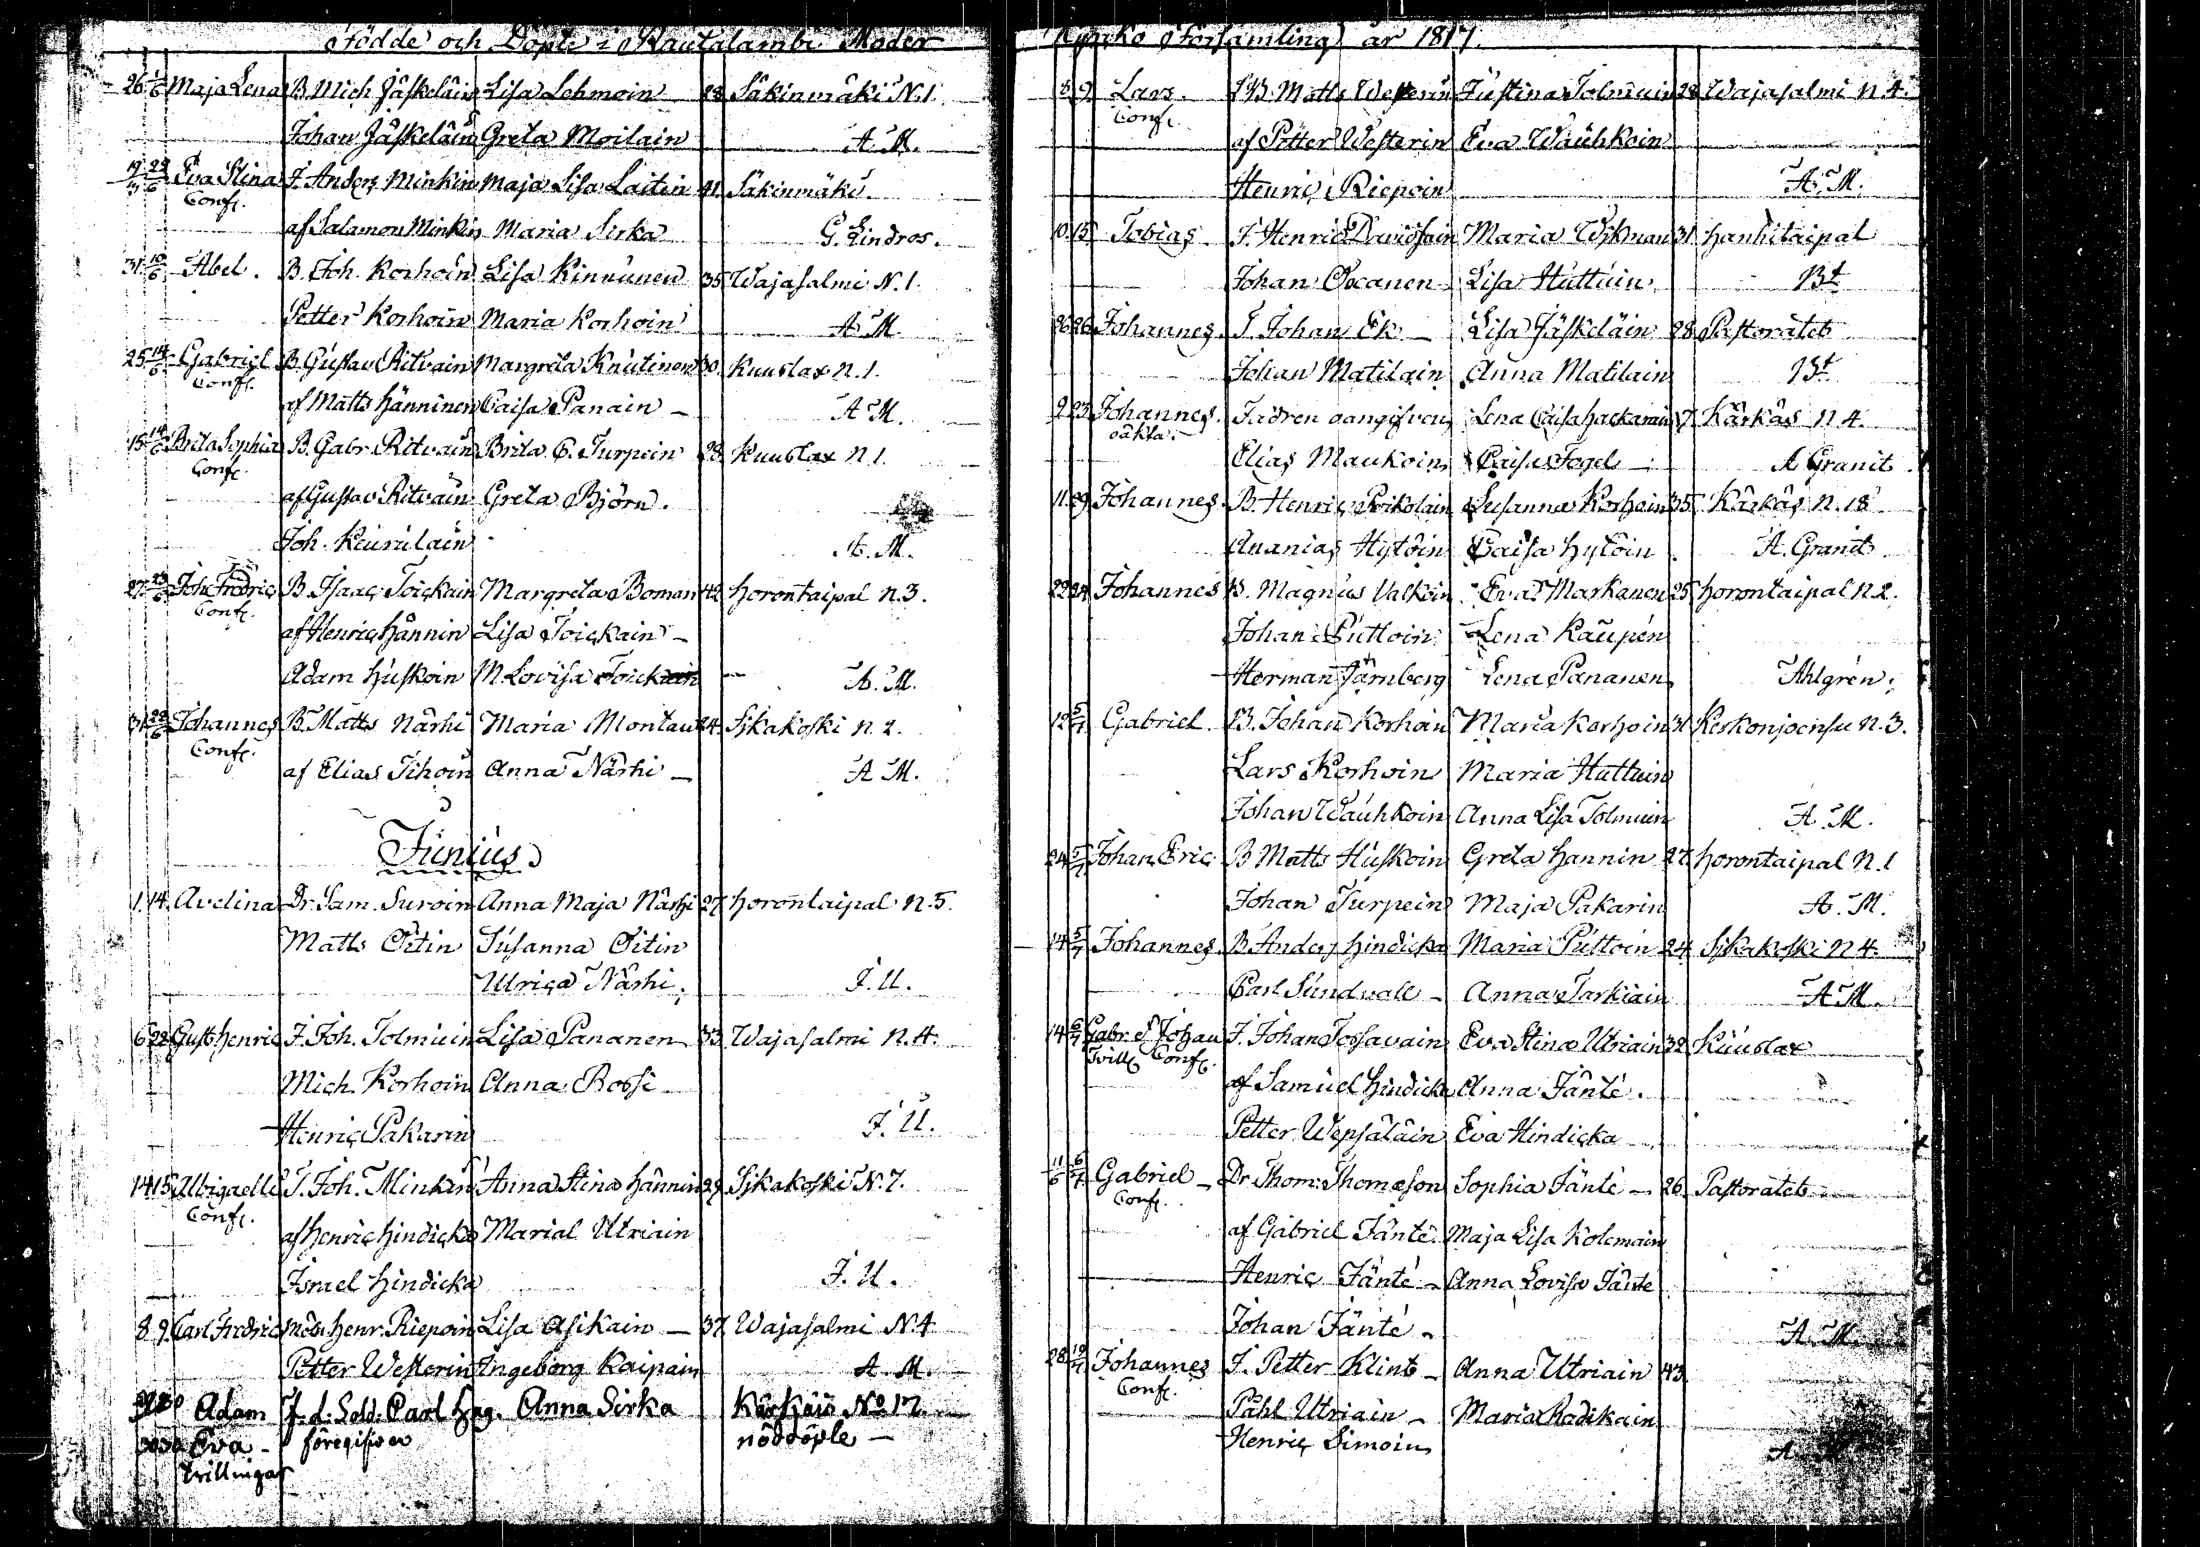 Födde och Döpte i Rautalambi Moder
26 1/6 Maja Lena B. Mich Jäskeläin Lisa Lehmoin 28 Säkinmäki N.1.
Johan Jäskeläin Greta Moilain A. M.
19/5 22/6 Eva Stina J. Anders Minkin Maja Lisa Laitin 41. Säkinmäki.
Conf. af Salamon Minkin Maria Sirka G. Lindros.
31. 10/6 Abel. B. Joh. Korhoin Lisa Kinnunen 35 Wajasalmi N.1.
Petter Korhoin Maria Korhoin A M.
25 14/6 Gabriel B. Gustav Ritvain Margreta Knutinen 30. Kuuslax n.1.
Conf. af Matts Hänninen Caisa Panain – A M.
15 14/6 Brita Sophia B. Gabr. Ritvain Brita C. Turpein 28. Kuuslax n 1.
Conf. af Gustav Ritvain Greta Björn.
Joh. Keinuläin A. M.
27. 23/6 Joh: Fredric B. Isaac Toickain Margreta Boman 42 horontaipal n.3.
Conf. af Henric Hännin Lisa Toickain –
Adam Huskoin M. Lovisa Toickain A. M.
31. 22/6 Johannes B. Matts Närhi Maria Montau 24. Sikakoski n. 2.
Conf. af Elias Tihoin Anna Närhi – A M.
Junius
1. 14. Avelina Dr. Sam. Suroin Anna Maja Närhi 27. horontaipal n.5.
Matts Oitin Susanna Oitin
Ulrica Närhi. J. U.
6 22 Gust Henric J. Joh. Tolmuin Lisa Pananen 33. Wajasalmi N.4.
Mich. Korhoin Anna Rossi
Henric Pakarin J. U.
14 15 Abigaell J. Joh. Minkin Anna Stina Hännin 29. Sikakoski N. 7.
Conf. af Henric Hindicka Maria Utriain
Israel Hindicka J. U.
8. 9. Carl Fredric Henr. Riepoin Lisa Asikain – 37. Wajasalmi N.4
Petter Westerin Ingeborg Kaipain A. M.
Adam f. d. Sold. Carl Hag. Anna Sirka No 17.
30 30 Eva – föregifven nöddöple –
tvillingar
Kyrko Församling år 1817.
8. 9. Lars. Matts Westerin Justina Tolmuin 28 Wajasalmi n 4.
Conf. af Petter Westerin Eva Wauhkoin
Henric Riepoin A. M.
10. 15 Tobias J. Henric Davidsain Maria Wikman 31 hanhitaipal
Johan Ocanen Lisa Huttuin Bt
26 26 Johannes. T. Johan Ek – Lisa Jäskeläin 28 Pastoratet
Johan Matilain Anna Matilain Bt
9 23 Johannes. Fadren oangifven Lena Caisa Hackarain 17 Kärkäs n 4.
oäkta. Elias Maukoin Caisa Fogel – A Granit.
11. 29 Johannes B. Henric Poikolain Susanna Korhoin 35. Kärkäs n. 18
Ananias Hytöin Caisa Hytöin A. Granit.
22 24 Johannes B. Magnus Valkoin Eva Markanen 25 horontaipal n 2.
Johan Puttoin Lena Kaupen
Herman Järnberg Lena Pananen Ahlgren.
12 5/7 Gabriel B. Johan Korhoin Maria Korhoin 31 Kerkonjoensu n.3.
Lars Korhoin Maria Huttuin
Johan Wauhkoin Anna Lisa Tolmuin A. M.
24 5/7 Johan Eric B Matts Huskoin Greta Hannin 27. horontaipal n.1
Johan Turpein Maja Pakarin A. M.
14 5/7 Johannes. B. Anders Hindicka Maria Puttoin 24 Sikakoski n 4.
Carl Sundvall – Anna Tarkiain A M.
14 6/7 Gabr. & Johan J. Johan Tossavain Eva Stina Utriain 32 Kuuslax
Tvill. Conf. af Samuel Hindicka Anna Jänté.
Petter Wepsäläin Eva Hindicka
11/6 6/7 Gabriel – Dr Thom: Thomason Sophia Jänté – 26. Pastoratet
Conf. af Gabriel Jänté. Maja Lisa Kolemain
Henric Jänté – Anna Lovisa Jänte
Johan Jänté – A. M.
28 19/7 Johannes J. Petter Klint – Anna Utriain 43
Conf. Påhl Utriain – Maria Radikain
Henric Simoin A. M